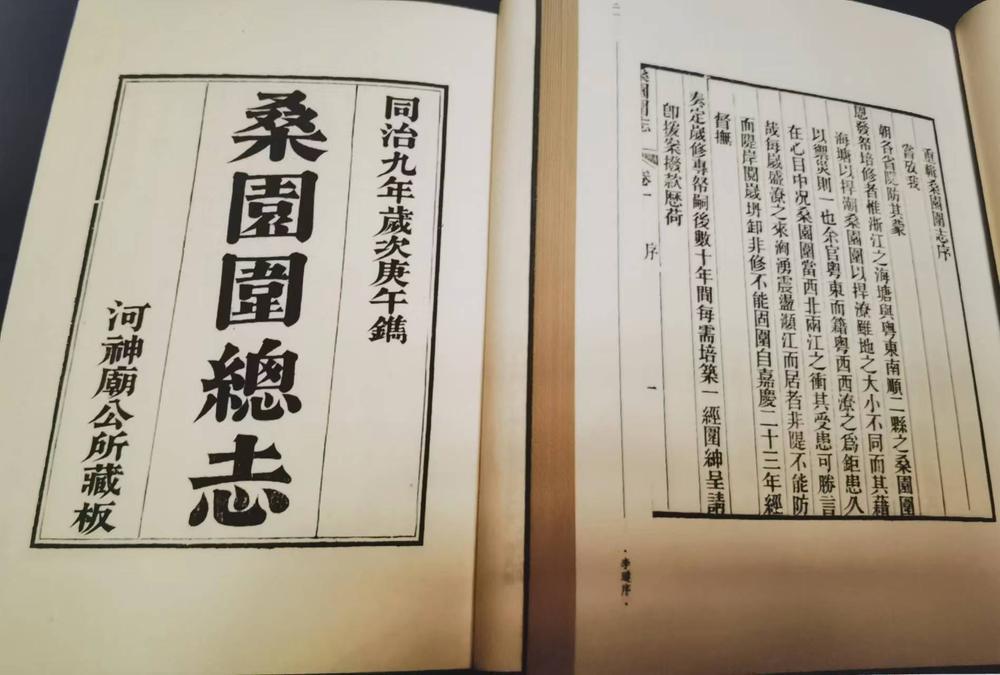 同治九年歲次庚午鐫
桑園圍總志
河神廟公所藏板
重輯桑園圍志序
嘗攷我
朝各省隄防其蒙
恩發帑培修者惟浙江之海塘與粤東南順二縣之桑園圍
海塘以捍潮桑園圍以捍潦雖地之大小不同而其藉
以禦災則一也余官粤東而籍粤西西潦之爲鉅患久
在心目中况桑園圍當西北兩江之衝其受患可勝言
哉每歲盛潦之來洶湧震盪瀕江而居者非隄不能防
而隄岸閱歲坍卸非修不能固圍自嘉慶二十三年經
督撫
奏定歲修專帑嗣後數十年間每需培築一經圍紳呈請
卽援案撥款歷荷
桑園圍志 卷一 序 一